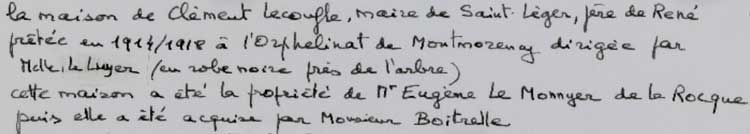 la maison de Clément Lecoufle, maire de Saint-Léger, père de René
prêtée en 1914/1918 à l'Orphelinat de Montmorency dirigée par
Melle Le Luyer (en robe noire près de l'arbre)
cette maison a été la propriété de Mr Eugène Le Monnyer de la Rocque
puis elle a été acquise par Monsieur Boitrelle